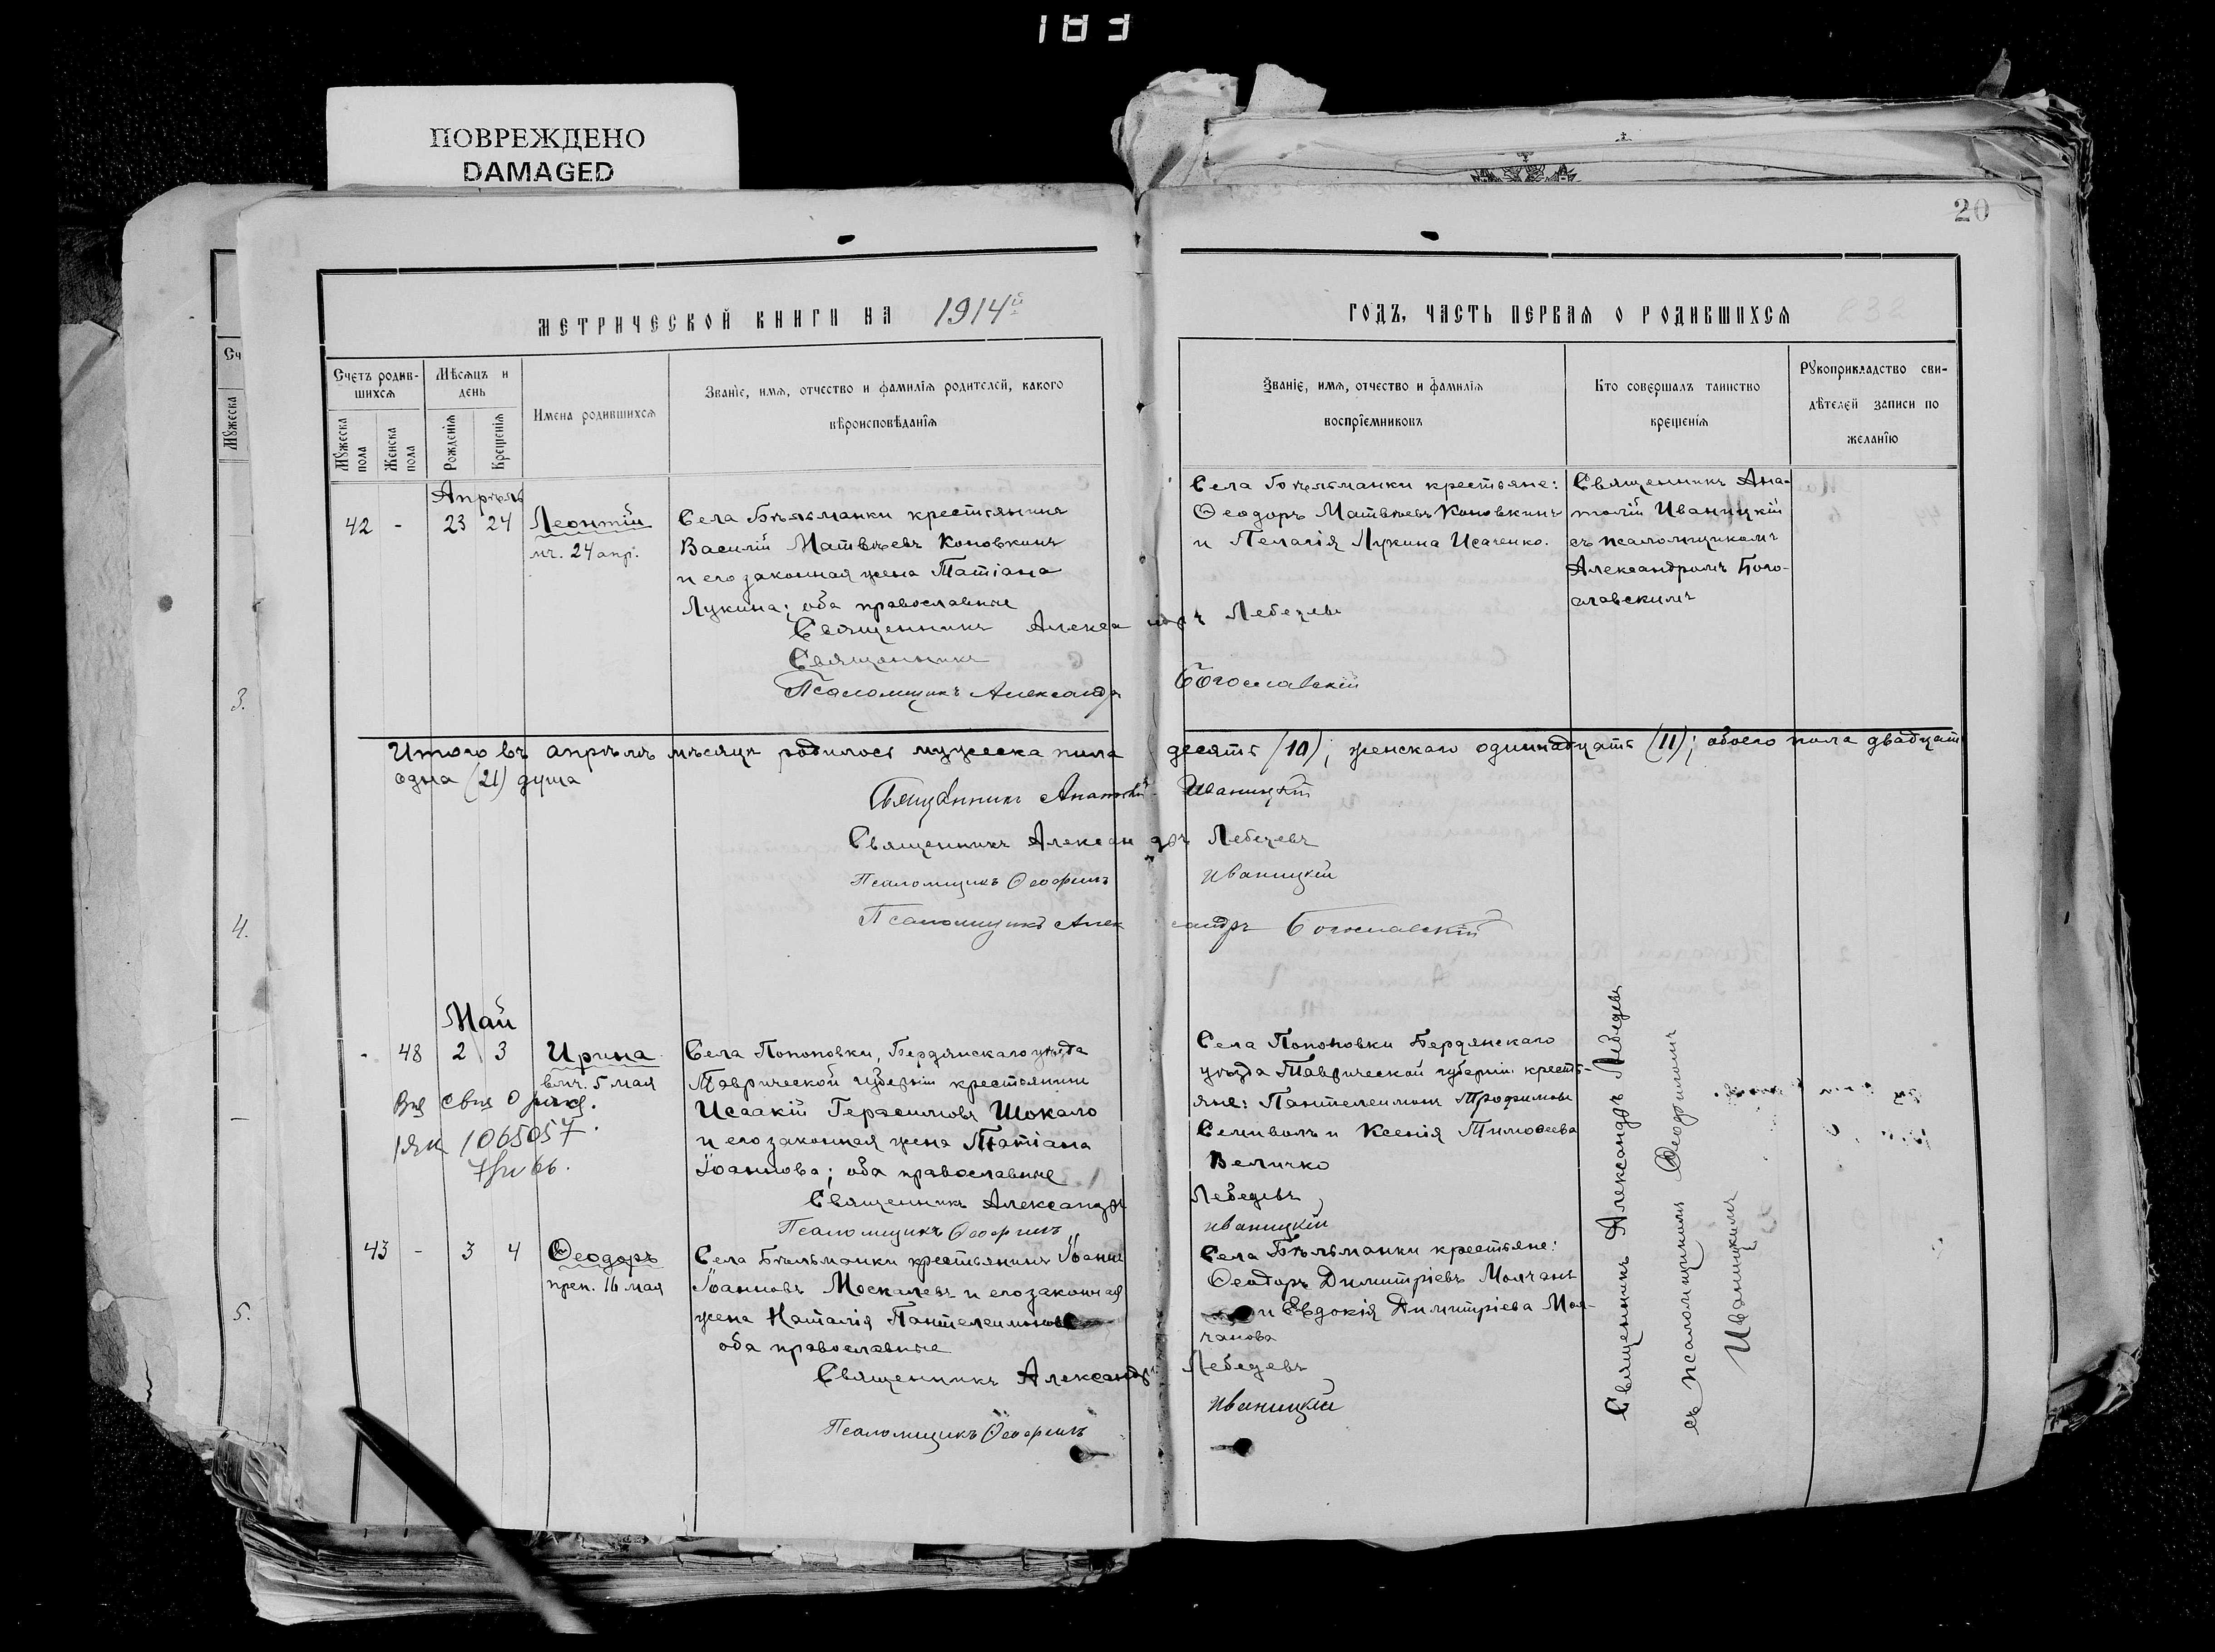 183
ПОВРЕЖДЕНО
DAMAGED
20
МЕТРИЧЕСКОЙ КНИГИ НА 1914й
ГОДЪ, ЧАСТЬ ПЕРВАЯ О РОДИВШИХСЯ
Счетъ родив-
шихся
Мужеска пола
Женска пола
Мѣсяцъ и
день
Рожденія
Крещенія
Имена родившихся
Званіе, имя, отчество и фамилія родителей, какого
вѣроисповѣданія
Званіе, имя, отчество и фамилія
воспріемниковъ
Кто совершалъ таинство
крещенія
Рукоприкладство сви-
дѣтелей записи по
желанію
Апрѣль
42 - 23 24 Леонтій
мч. 24 апр.
Села Бѣльманки крестьянинъ
Василій Матвѣевъ Коновкинъ
и его законная жена Татіана
Лукина; оба православные
Села Бѣльманки крестьяне:
Ѳеодоръ Матвѣевъ Коновкинъ
и Пелагія Лукина Исаченко.
Священникъ Ана-
толій Иваницкій
съ псаломщикомъ
Александромъ Бого-
славскимъ
Священникъ Александръ Лебедевъ
Священникъ
Псаломщикъ Александръ Богославскій
Итого въ апрѣлѣ мѣсяцѣ родилось мужеска пола десять (10); женскаго одиннадцать (11); обоего пола двадцать
одна (21) душа
Священникъ Анатолій Иваницкій
Священникъ Александръ Лебедевъ
Псаломщикъ Ѳеофилъ Иваницкій
Псаломщикъ Александръ Богославскій
Май
- 48 2 3 Ирина
влмч. 5 мая
1065057
Села Попоповки, Бердянскаго уѣзда
Таврической губерніи крестьянинъ
Исаакій Герасимовъ Шокало
и его законная жена Татіана
Іоаннова; оба православные
Села Попоповки Бердянскаго
уѣзда Таврической губерніи кресть-
яне: Пантелеимонъ Трофимовъ
Семиволъ и Ксенія Тимоѳеева
Величко
Священникъ Александръ Лебедевъ
Псаломщикъ Ѳеофилъ Иваницкій
43 - 3 4 Ѳеодоръ
преп. 16 мая
Села Бѣльманки крестьянинъ Іоаннъ
Іоанновъ Москалевъ и его законная
жена Наталія Пантелеимонова
оба православные
Села Бѣльманки крестьяне:
Ѳеодоръ Димитріевъ Молчанъ
и Евдокія Димитріева Мол-
чанова
Священникъ Александръ Лебедевъ
Псаломщикъ Ѳеофилъ Иваницкій
Священникъ Александръ Лебедевъ
съ псаломщикомъ Ѳеофиломъ
Иваницкимъ
Сч
Мужеска
3.
4.
5.